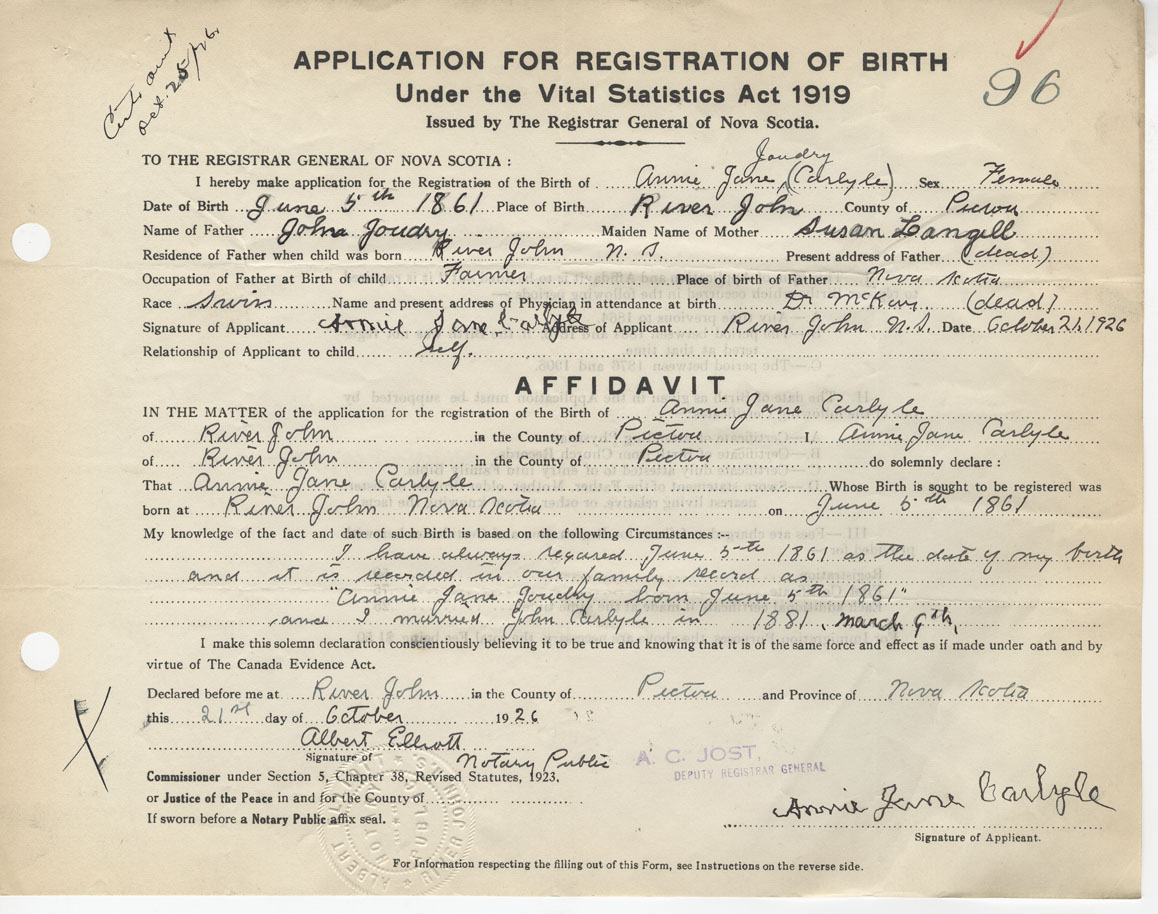 Certi. out
Oct. 25/26.
96
APPLICATION FOR REGISTRATION OF BIRTH
Under the Vital Statistics Act 1919
Issued by The Registrar General of Nova Scotia.
TO THE REGISTRAR GENERAL OF NOVA SCOTIA :
Joudry
I hereby make application for the Registration of the Birth of Annie Jane (Carlyle) Sex Female
Date of Birth June 5th 1861 Place of Birth River John County of Pictou
Name of Father John Joudry Maiden Name of Mother Susan Langill
Residence of Father when child was born River John N. S. Present address of Father (dead)
Occupation of Father at Birth of child Farmer Place of birth of Father Nova Scotia
Race Swiss Name and present address of Physician in attendance at birth Dr McKay (dead)
Signature of Applicant Annie Jane Carlyle Address of Applicant River John N.S. Date October 21, 1926
Relationship of Applicant to child Self.
AFFIDAVIT
IN THE MATTER of the application for the registration of the Birth of Annie Jane Carlyle
of River John in the County of Pictou I, Annie Jane Carlyle
of River John in the County of Pictou do solemnly declare :
That Annie Jane Carlyle Whose Birth is sought to be registered was
born at River John Nova Scotia on June 5th 1861
My knowledge of the fact and date of such Birth is based on the following Circumstances :--
I have always regared June 5th 1861 as the date of my birth
and it is recorded in our family record as
"Annie Jane Joudry born June 5th 1861"
and I married John Carlyle in 1881, March 9th,
I make this solemn declaration conscientiously believing it to be true and knowing that it is of the same force and effect as if made under oath and by
virtue of The Canada Evidence Act.
Declared before me at River John in the County of Pictou and Province of Nova Scotia
this 21st day of October 1926
Albert Elliott
Signature of Notary Public
A. C. JOST,
DEPUTY REGISTRAR GENERAL
Commissioner under Section 5, Chapter 38, Revised Statutes, 1923,
or Justice of the Peace in and for the County of
If sworn before a Notary Public affix seal.
Annie Jane Carlyle
Signature of Applicant.
For Information respecting the filling out of this Form, see Instructions on the reverse side.